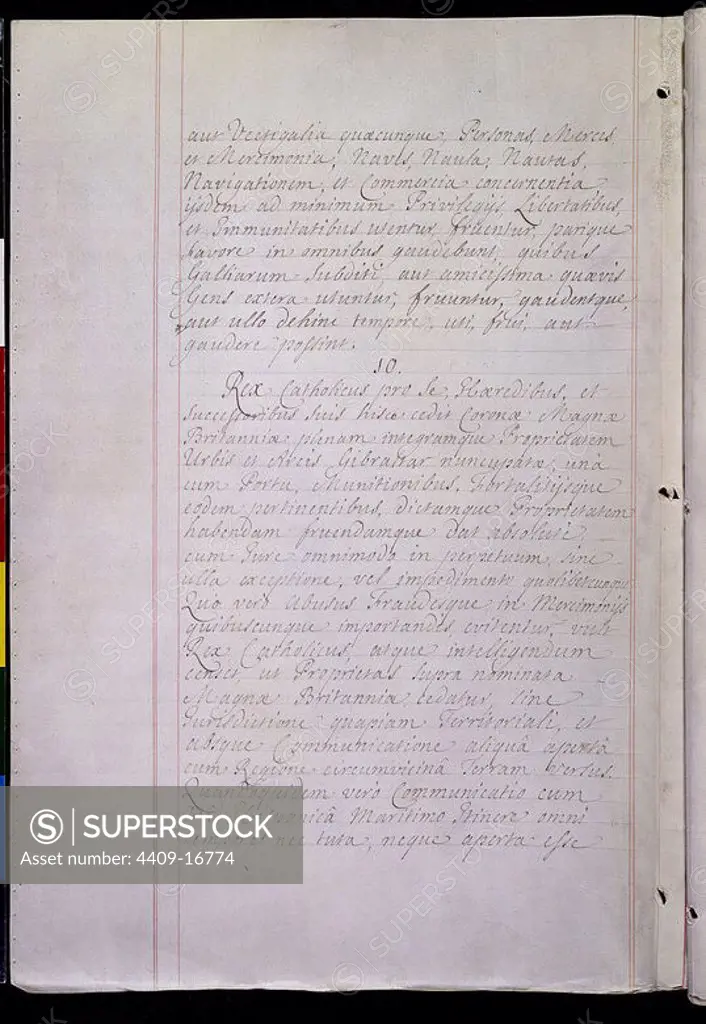 aut Vectigalia quæcunque, Personas, Merces
et Mercimonia, Naves, Naula, Nautas,
Navigationem, et Commercia concernentia,
ijsdem ad minimum Privilegijs, Libertatibus,
et Immunitatibus utentur, fruentur, parique
favore in omnibus gaudebunt, quibus
Galliarum Subditi, aut amicissima quævis
Gens extera utuntur, fruuntur, gaudentque,
aut ullo dehinc tempore, uti, frui, aut
gaudere possint.
10.
Rex Catholicus pro Se, Hæredibus, et
Successoribus Suis hisce cedit Coronæ Magnæ
Britanniæ plenam integramque Proprietatem
Urbis et Arcis Gibraltar nuncupatæ, unà
cum Portu, Munitionibus, Fortalitijsque
eodem pertinentibus, dictamque Proprietatem
habendam fruendamque dat absolutè
cum Jure omnimodo in perpetuum, sine
ulla exceptione, vel impedimento quolibetcunque
Quo vero Abusus Fraudesque in Mercimonijs
quibuscunque importandis evitentur, vult
Rex Catholicus, atque intelligendum
censet, ut Proprietas supra nominata
Magnæ Britanniæ cedatur, sine
Jurisdictione quapiam Territoriali, et
absque Communicatione aliquâ apertâ
cum Regione circumvicinâ Terram versus.
vero Communicatio cum
Maritimo Itinere omni
nec tuta, neque aperta esse
SUPERSTOCK
Asset number: 4409-16774